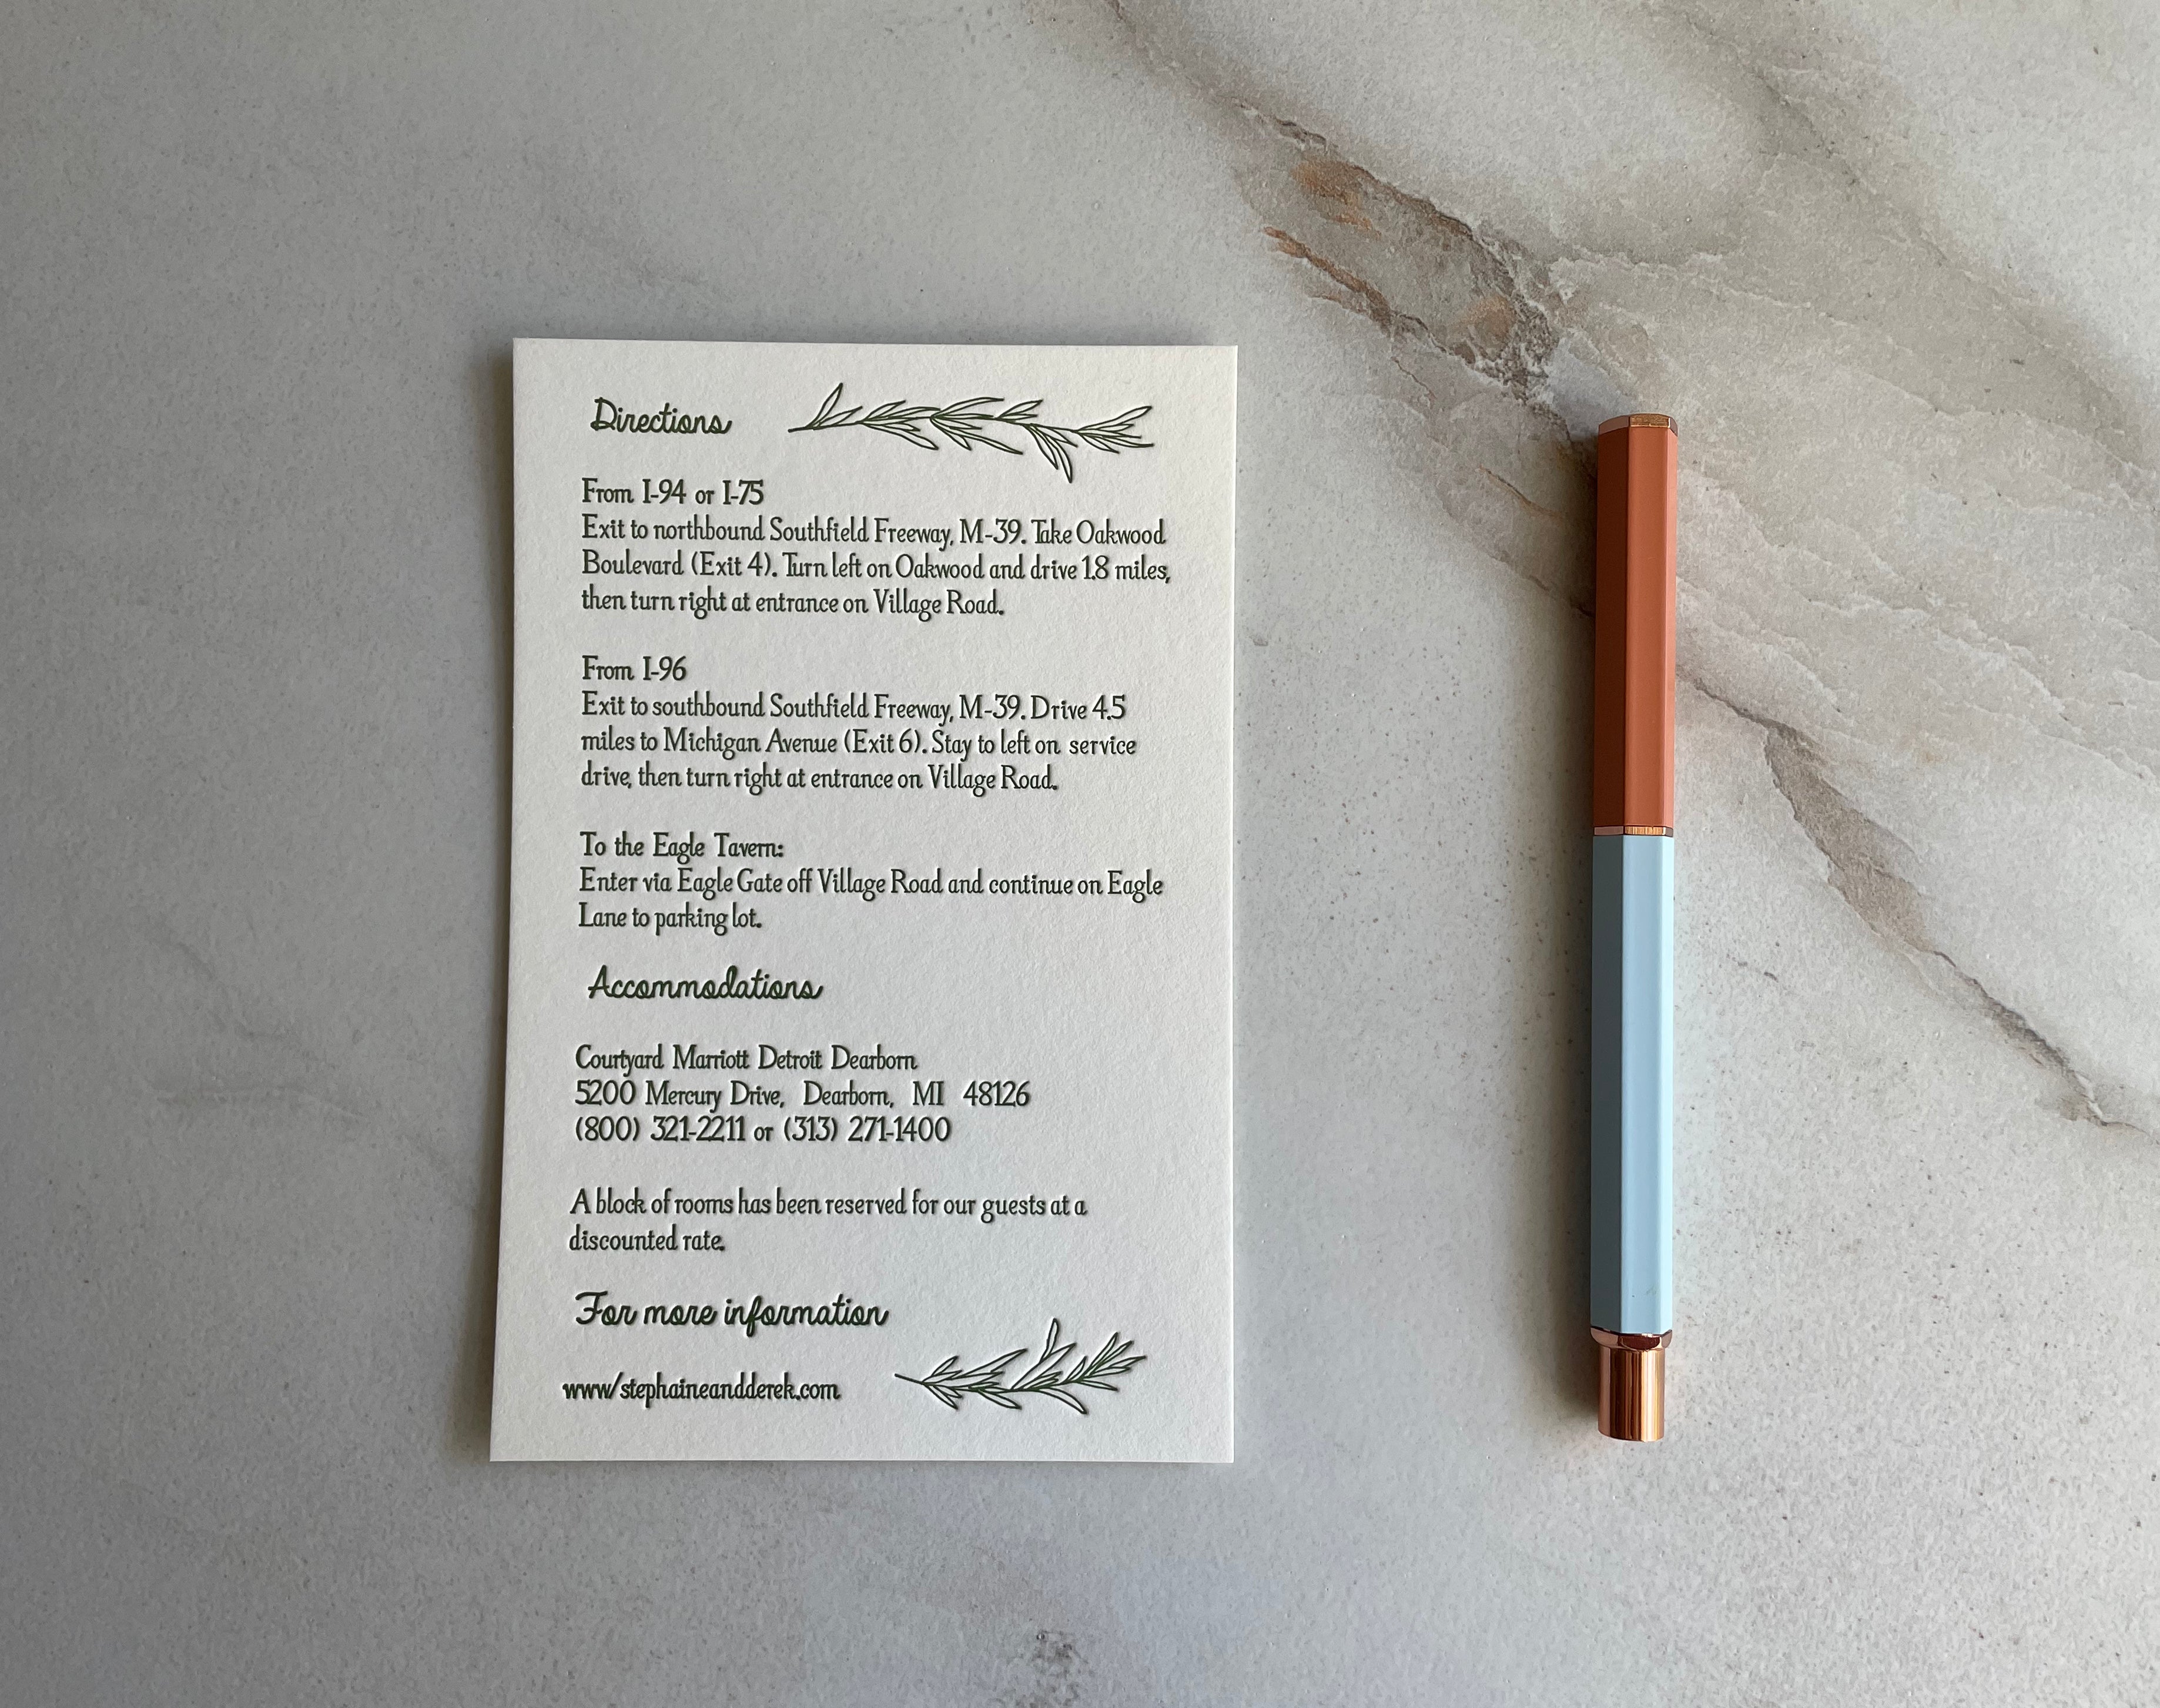 Directions
From I-94 or I-75
Exit to northbound Southfield Freeway, M-39. Take Oakwood
Boulevard (Exit 4). Turn left on Oakwood and drive 1.8 miles,
then turn right at entrance on Village Road.
From I-96
Exit to southbound Southfield Freeway, M-39. Drive 4.5
miles to Michigan Avenue (Exit 6). Stay to left on service
drive, then turn right at entrance on Village Road.
To the Eagle Tavern:
Enter via Eagle Gate off Village Road and continue on Eagle
Lane to parking lot.
Accommodations
Courtyard Marriott Detroit Dearborn
5200 Mercury Drive, Dearborn, MI 48126
(800) 321-2211 or (313) 271-1400
A block of rooms has been reserved for our guests at a
discounted rate.
For more information
www/stephaineandderek.com